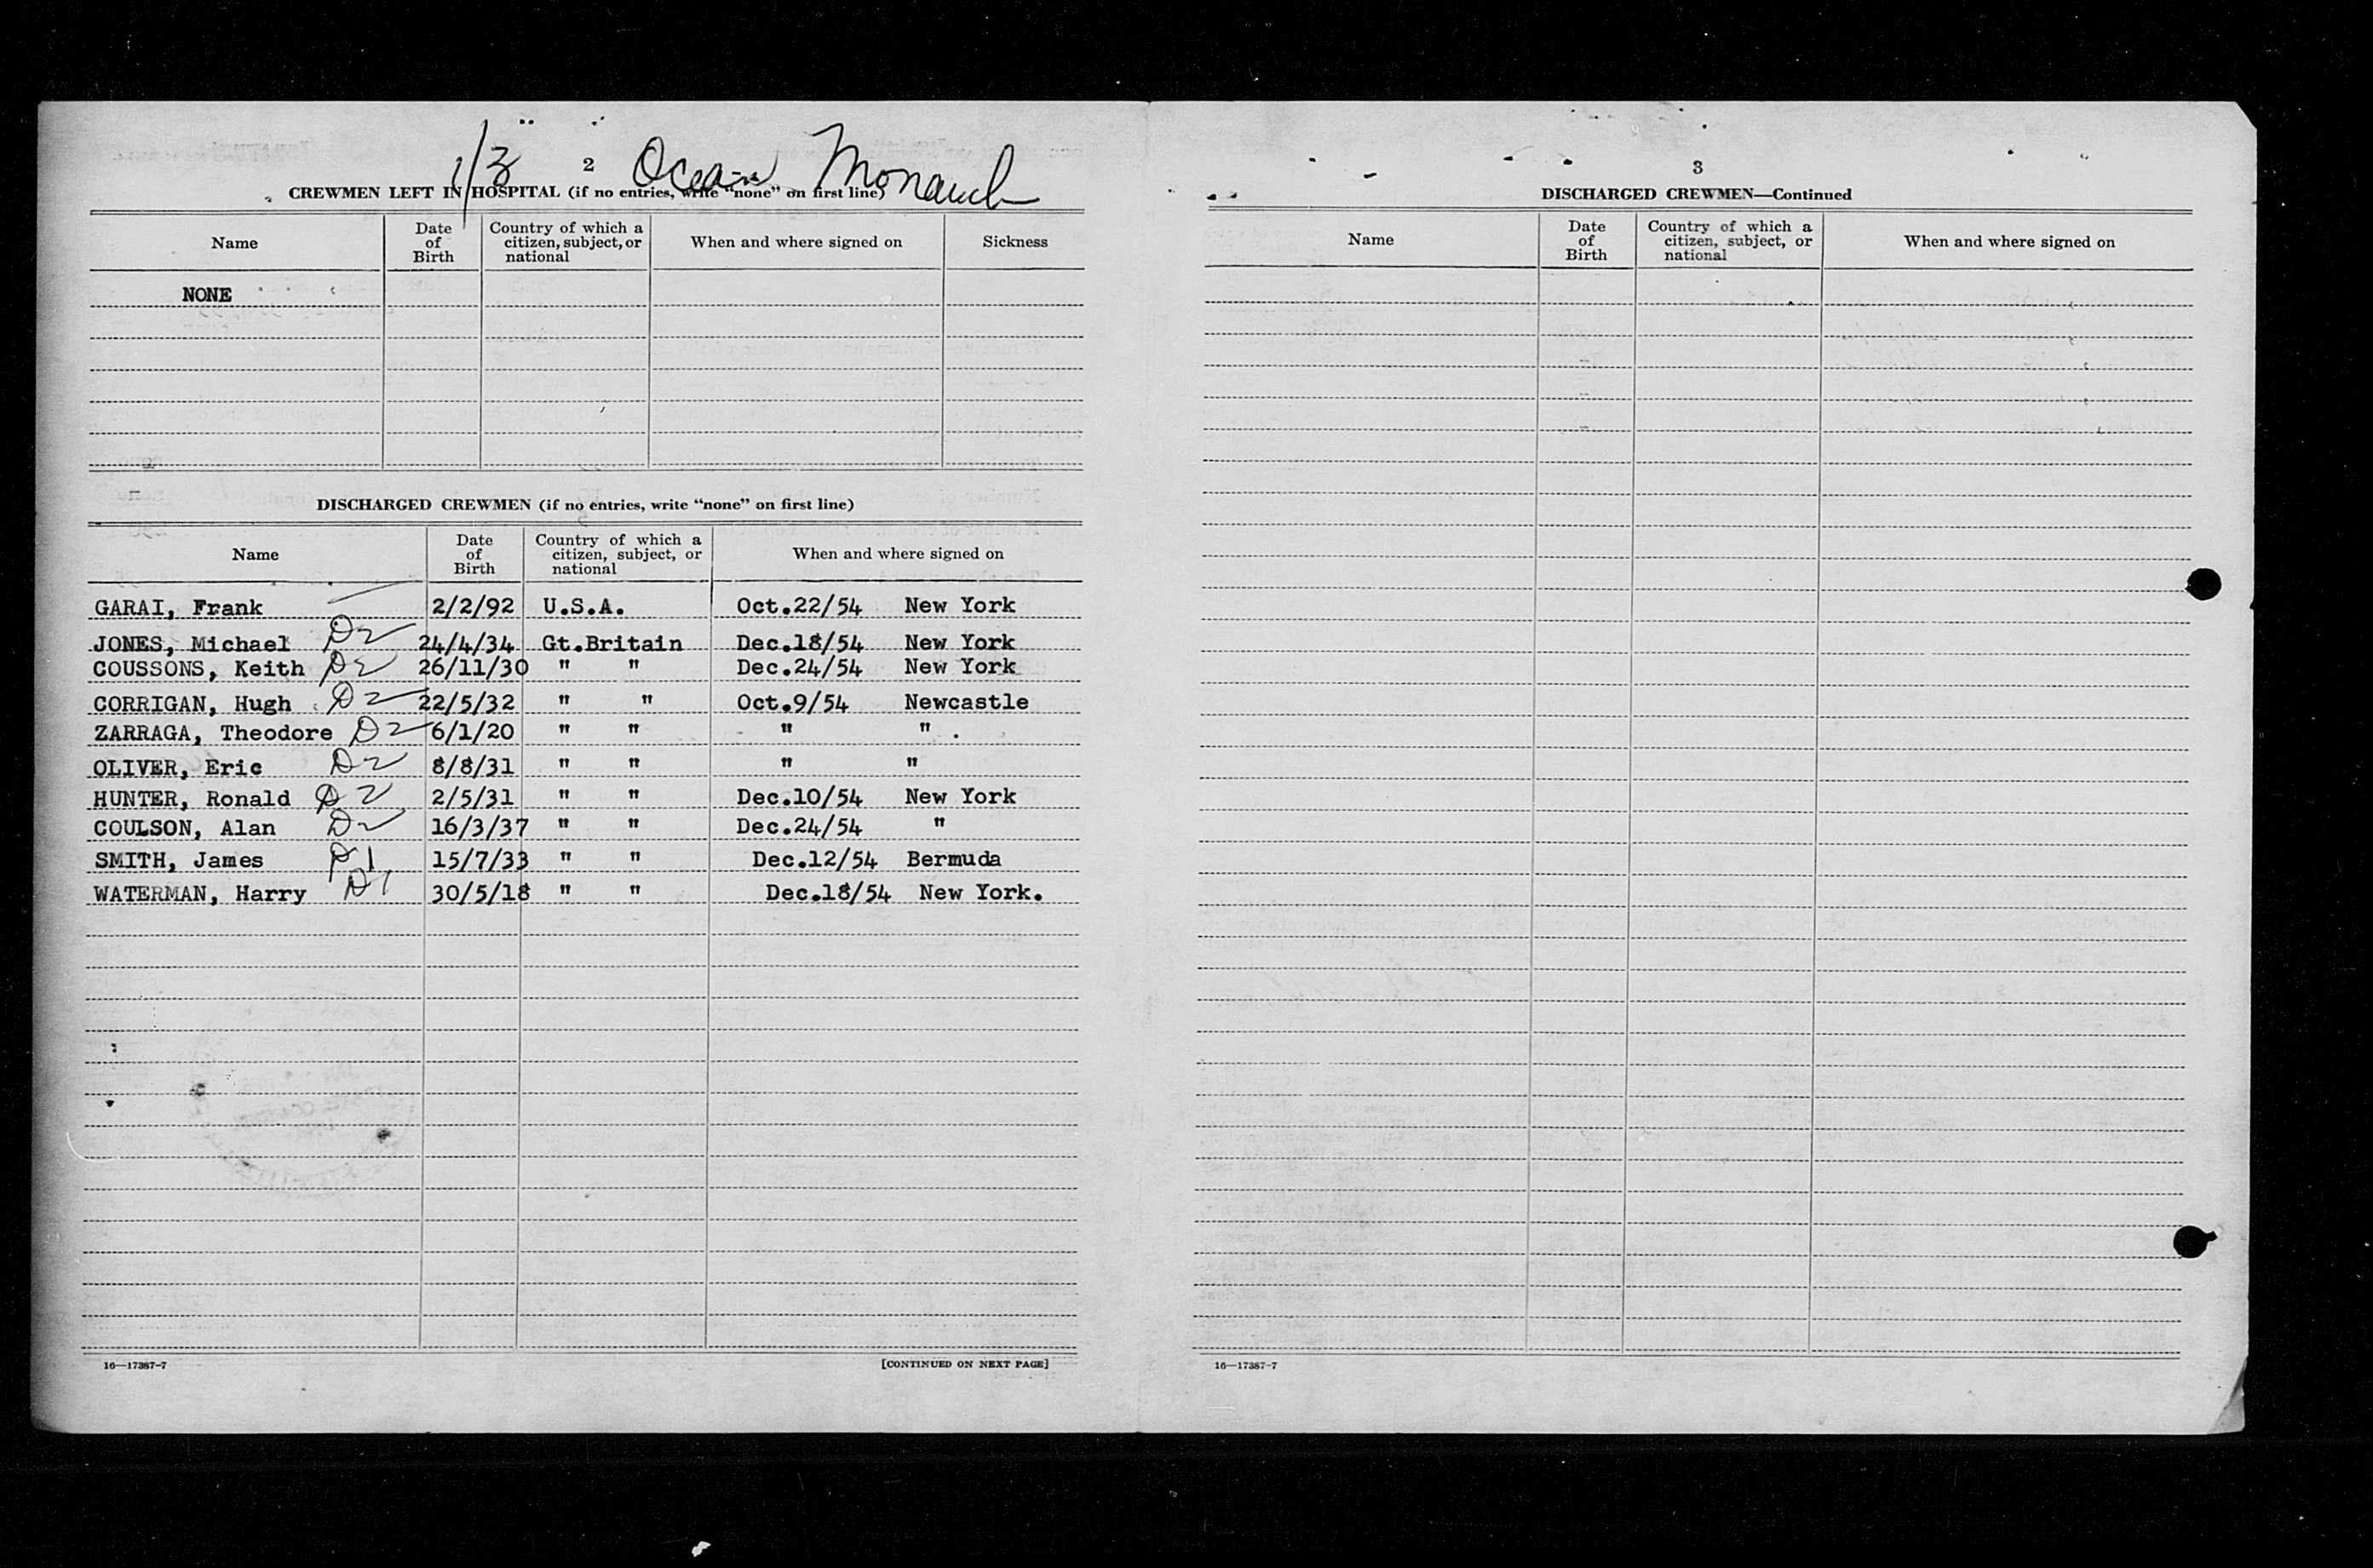 1/3 2 Ocean Monarch
CREWMEN LEFT IN HOSPITAL (if no entries, write “none” on first line)
Name Date of Birth Country of which a citizen, subject, or national When and where signed on Sickness
NONE
DISCHARGED CREWMEN (if no entries, write “none” on first line)
Name Date of Birth Country of which a citizen, subject, or national When and where signed on
GARAI, Frank 2/2/92 U.S.A. Oct.22/54 New York
JONES, Michael D2 24/4/34 Gt.Britain Dec.18/54 New York
COUSSONS, Keith D2 26/11/30 " " Dec.24/54 New York
CORRIGAN, Hugh D2 22/5/32 " " Oct.9/54 Newcastle
ZARRAGA, Theodore D2 6/1/20 " " " " .
OLIVER, Eric D2 8/8/31 " " " "
HUNTER, Ronald D2 2/5/31 " " Dec.10/54 New York
COULSON, Alan D2 16/3/37 " " Dec.24/54 "
SMITH, James D1 15/7/33 " " Dec.12/54 Bermuda
WATERMAN, Harry D1 30/5/18 " " Dec.18/54 New York.
16—17387-7 [CONTINUED ON NEXT PAGE]
3
DISCHARGED CREWMEN—Continued
Name Date of Birth Country of which a citizen, subject, or national When and where signed on
16—17387-7